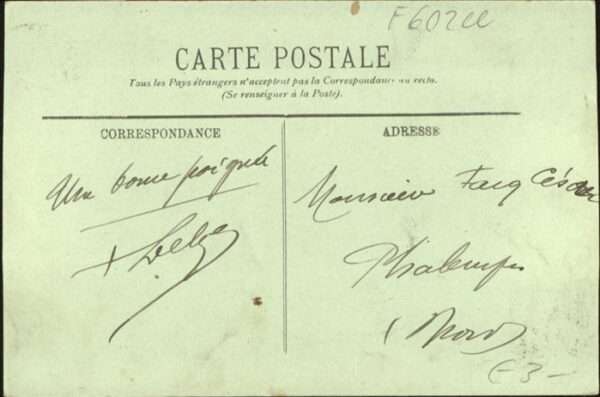 F602cc
CARTE POSTALE
Tous les Pays étrangers n'acceptent pas la Correspondance au recto.
(Se renseigner à la Poste).
CORRESPONDANCE
ADRESSE
Une bonne poignée
Monsieur César
Phalempin
(Nord)
€3-